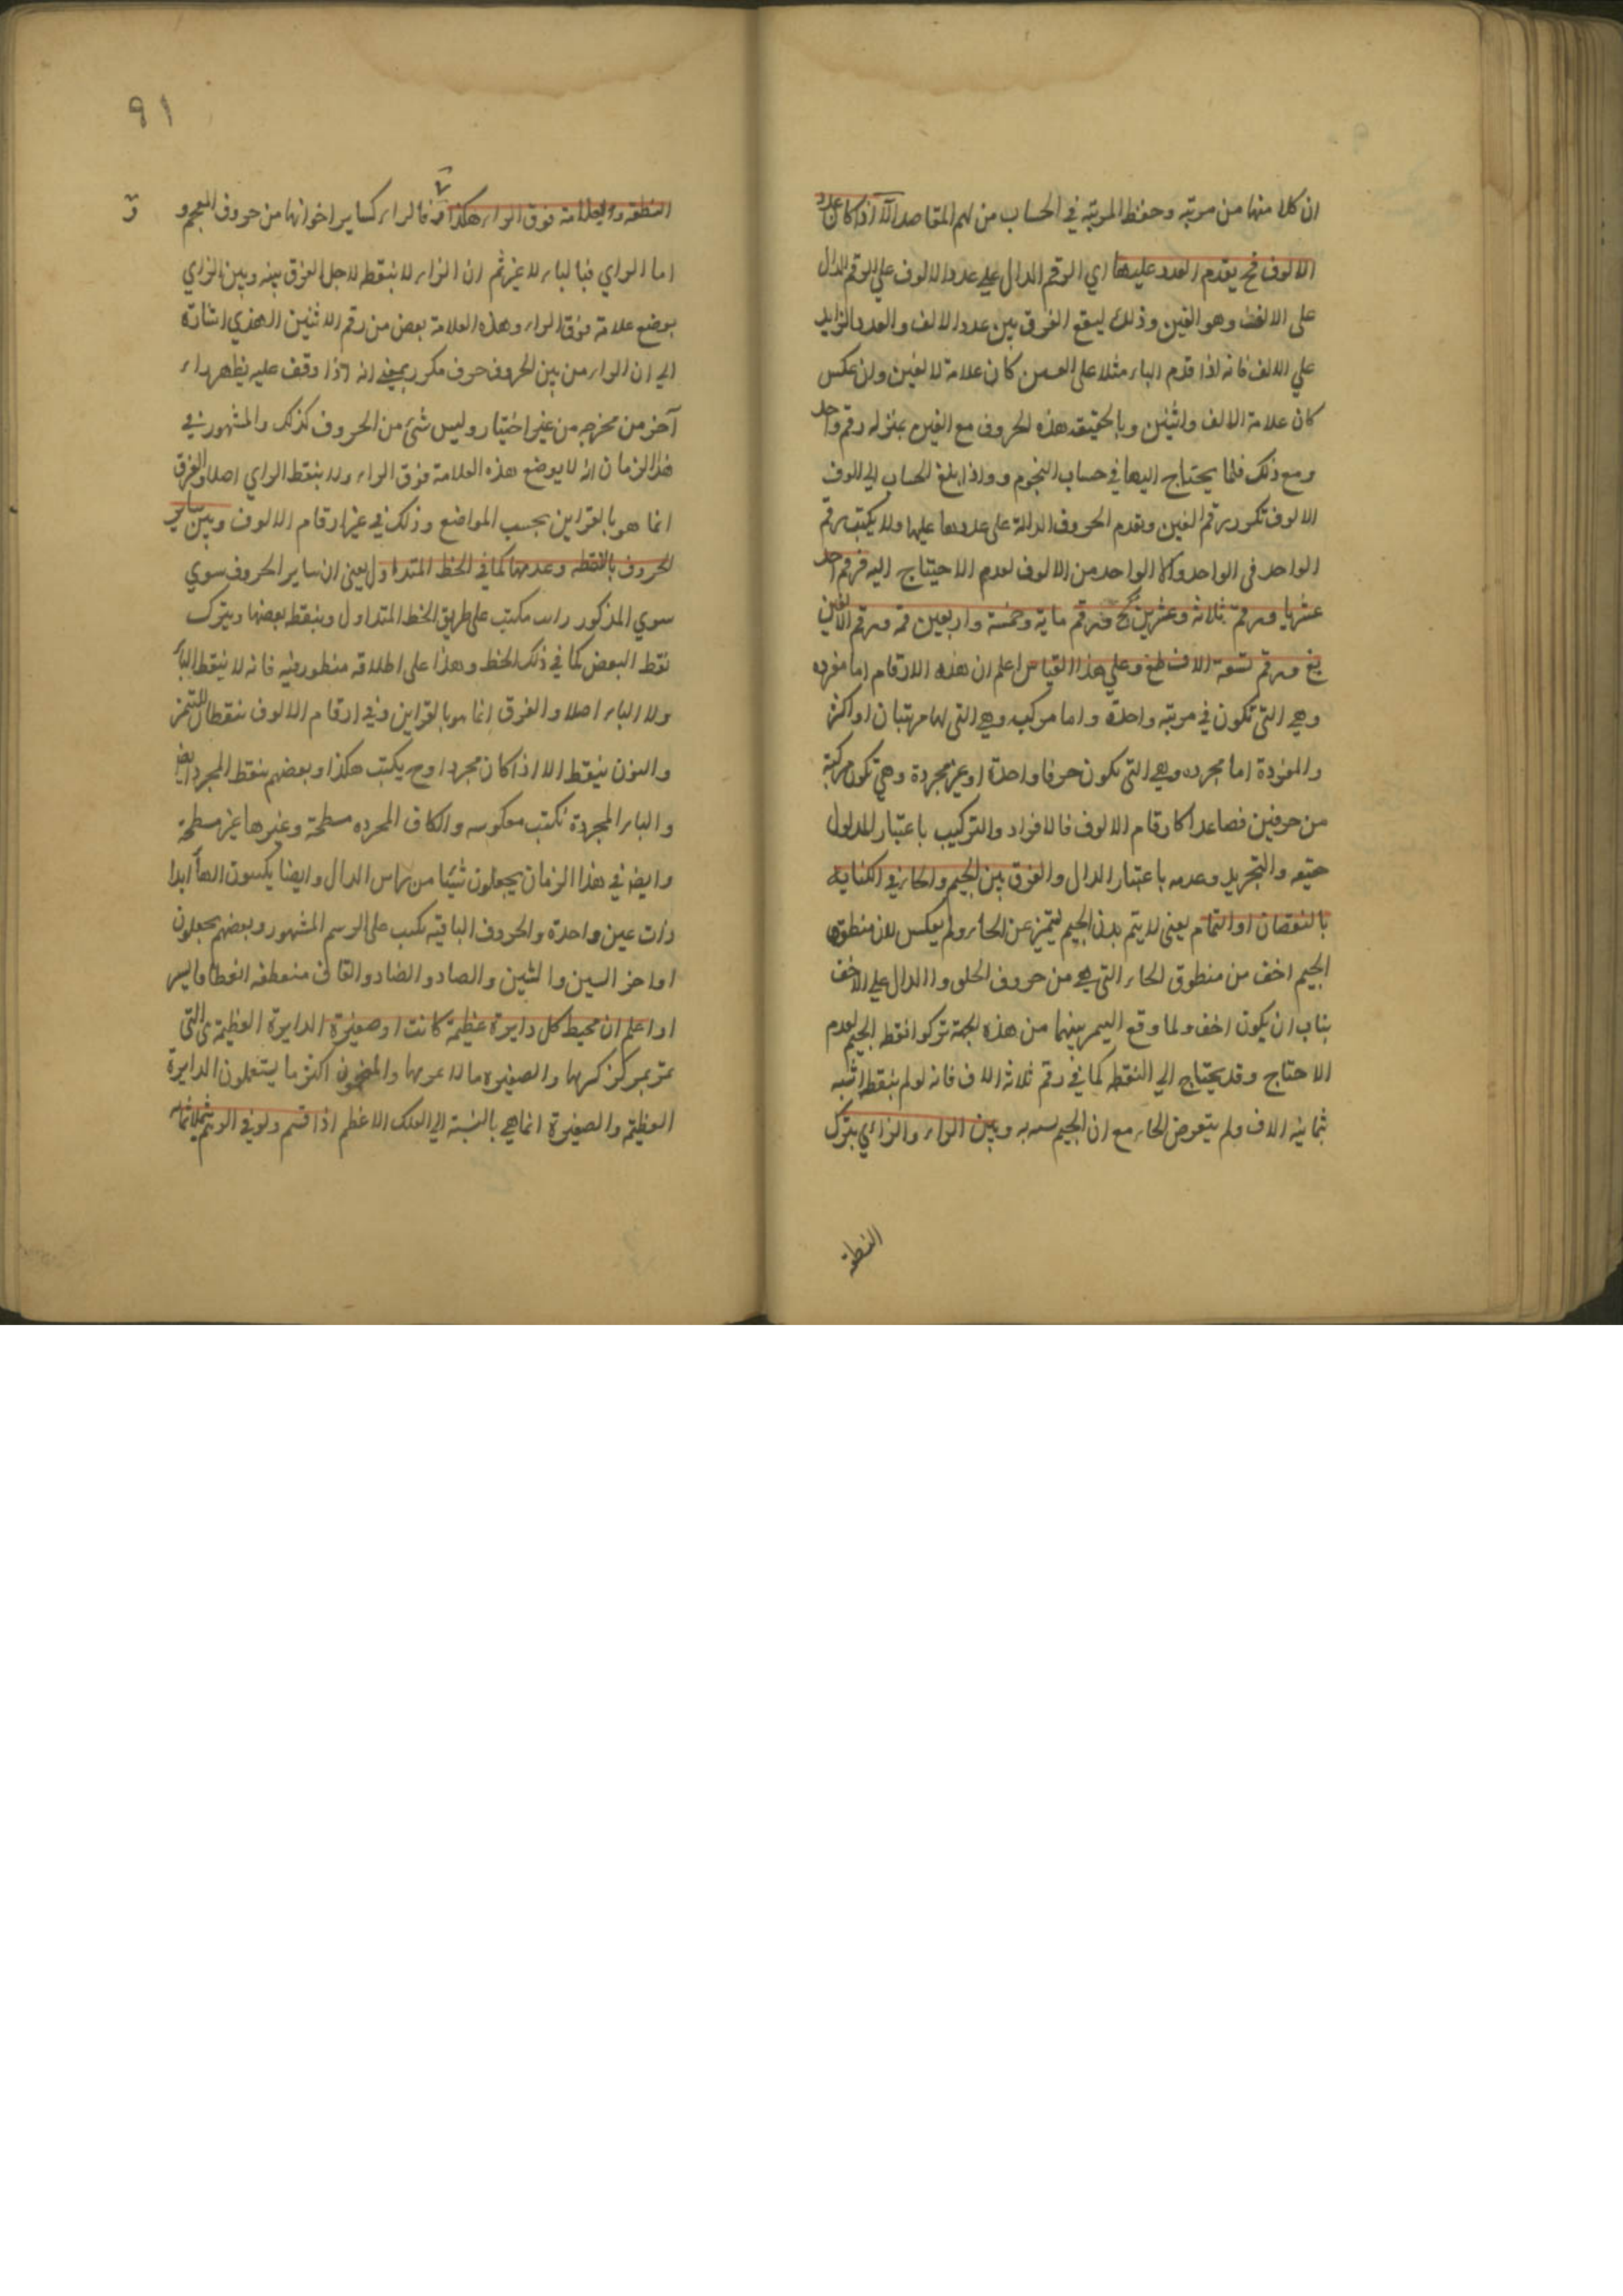 ان كلا منها من مرتبه وحفظ المرتبه في الحساب من اهم المقاصد الا اذا كان عدد
الالوف فح يقدم العدد عليها اي الرقم الدال علي عدد الالوف علي الرقم الدال
علي الالف وهو الغين وذلك ليقع الفرق بين عدد الالف والعدد الزايد
علي الالف فانه اذا قدم الباء مثلا على الغين كان علامة لالفين ولن عكس
كان علامة الالف واثنين وبالحقيقه هذه الحروف مع الغين بمنزله رقم واحد
ومع ذلك قلما يحتاج اليها في حساب النجوم وواذا بلغ الحساب الي الوف
الالوف تكرر رقم الغين وتقدم الحروف الدالة على عددها عليها ولا يكتب رقم
الواحد في الواحد والا الواحد من الالوف لعدم الاحتياج اليه فرقم احد
عشر يا ورقم ثلاثه وعشرين كج ورقم ماية وخمسة واربعين قمه ورقم الالفين
بغ ورقم تسعة الاف طغ وعلي هذا القياس اعلم ان هذه الارقام اما مفرده
وهي التي تكون في مرتبه واحدة واما مركبه وهي التي لها مرتبتان او اكثر
والمفردة اما مجرده وهي التي تكون حرفا واحدة او غير مجردة وهي تكون مركبة
من حرفين فصاعدا كارقام الالوف فالافراد والتركيب باعتبار المدلول
حقيقه والتجريد وعدمه باعتبار الدال والفرق بين الجيم والحاء في الكتابة
بالنقصان او التمام يعني لا يتم بدن الجيم ليتميز عن الحاء ولم يعكس لان منطوق
الجيم اخف من منطوق الحاء التي هي من حروف الحلق والدال علي الاخف
يناسب ان يكون اخف ولما وقع التميز بينهما من هذه الجهة تركوا نقطه الجيم لعدم
الاحتاج وقد يحتاج الي النقطه كما في رقم ثلاثه الاف فانه لو لم ينقط اشبه
ثمانيه الاف ولم يتعرض الحاء مع ان الجيم وبين الراء والزاي بترك
النقطة
٩١
النقطه والعلامة فوق الراء هكذا فالراء كساير اخواتها من حروف المعجم و
اما الزاي فبالياء لا غير ثم ان الزاء لا ينقط لاجل الفرق بينه وبين الزاي
بوضع علامة فوق الراء وهذه العلامة بعض من رقم الاثنين الهندي اشارة
الي ان الراء من بين الحروف حرف مكرر بمعني انه اذا وقف عليه يظهر راء
آخر من مخرجه من غير اختيار وليس شئ من الحروف كذلك والمشهور في
هذا الزمان انه لا يوضع هذه العلامة فوق الراء ولا ينقط الزاي اصلا والفرق
انما هو بالقراين بحسب المواضع وذلك في غير ارقام الالوف وبين ساير
الحروف بالنقطه وعدمها كما في الخط المتداول يعني ان ساير الحروف سوي
سوي المذكور يكتب على طريق الخط المتداول وينقط بعضها ويترك
نقط البعض كما في ذلك الخط وهذا على اطلاقه منظور فيه فانه لا ينقط الباء
ولا الياء اصلا والفرق انما هو بالقراين وفي ارقام الالوف ينقطان للتميز
والنون ينقط الا اذا كان مجردا وح يكتب هكذا وبعضهم ينقط المجرد ايض
والياء المجردة تكتب معكوسه والكاف المجرده مسطحة وغيرها غير مسطحة
وايض في هذا الزمان يجعلون شيئا من راس الدال وايضا يكتبون الهاء ابدا
ذات عين واحدة والحروف الباقيه تكتب على الرسم المشهور وبعضهم يجعلون
اواخر السين والشين والصاد والضاد والقاف منعطفه انعطافا يسير
اواعلم ان محيط كل دايرة عظيمة كانت او صغيرة الدايرة العظيمة هي التي
تمر بمركز كرتها والصغيره ما لا يمر بها والمنجمون اكثر ما يستعملون الدايرة
العظيمة والصغيرة انما هي بالنسبة الي الفلك الاعظم اذا قسم ولو في الوهم بثلاثماية